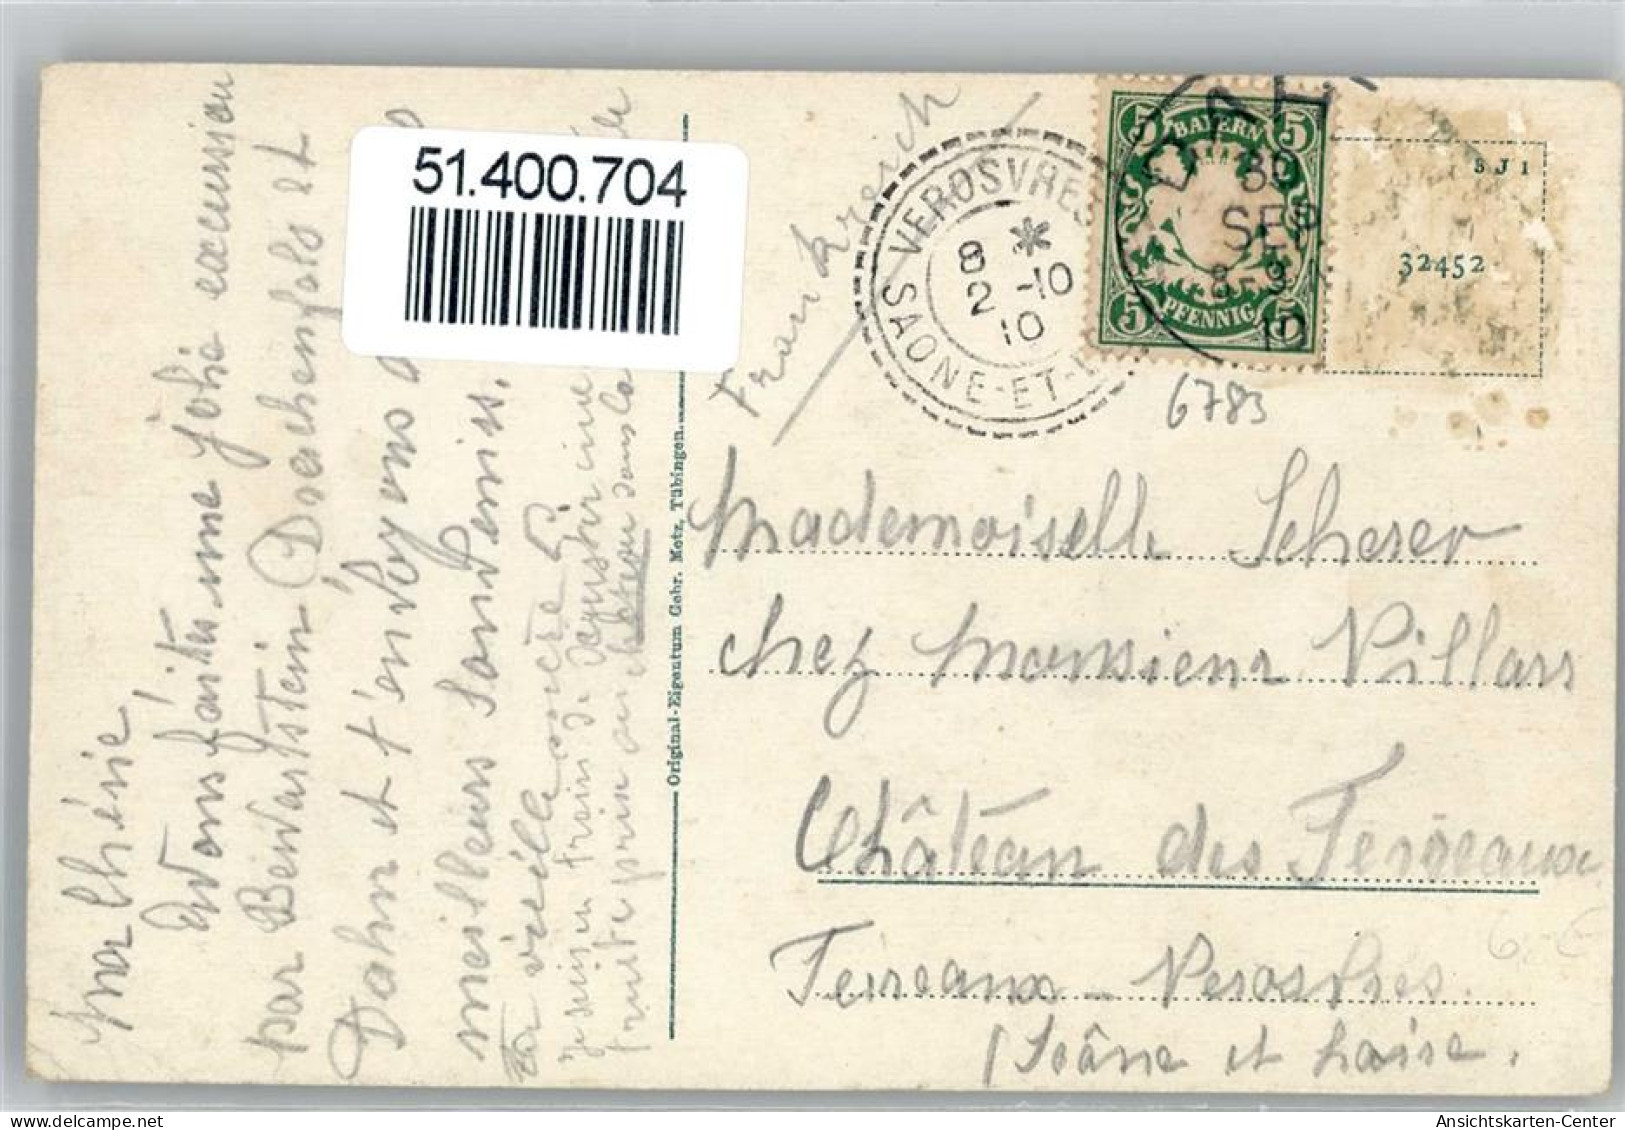 51.400.704
Ma Chérie
Avons faites une jolie excursion
par Berwartstein, Drachenfels et
Dahn et t'envoyons
meilleurs souvenirs.
Ta vieille
Je suis en train de déguster une
truite prise au château sous la
Original-Eigentum Gebr. Metz, Tübingen.
Frankreich
VEROSVRES
SAONE-ET-L
*
8 -10
2
10
5 BAYERN 5
5 PFENNIG 5
DAH
30
SEP.
8-9
10
3 J 1
32452
6783
Mademoiselle Scherer
chez Monsieur Villars
Château des Terreaux
Terreaux - Verosvres.
(Saône et Loire.
6.- €
Ansichtskarten-Center